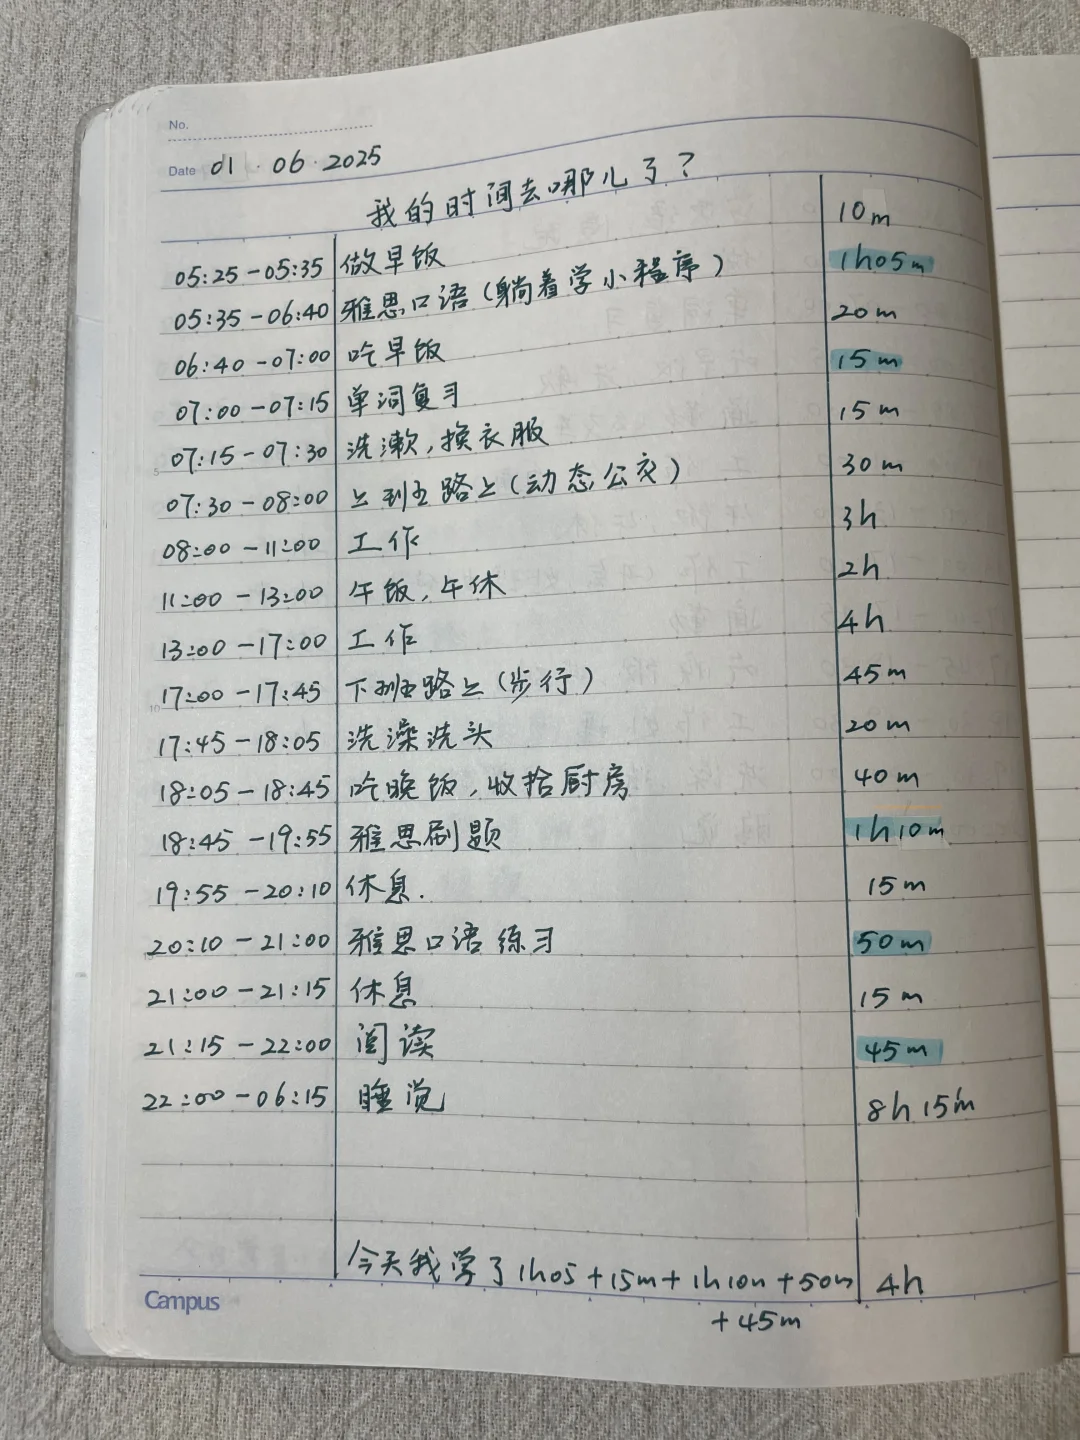 No.
Date 01·06·2025
我的时间去哪儿了？
05:25-05:35 做早饭 10m
05:35-06:40 雅思口语(躺着学小程序) 1h05m
06:40-07:00 吃早饭 20m
07:00-07:15 单词复习 15m
07:15-07:30 洗漱,换衣服 15m
07:30-08:00 上班路上(动态公交) 30m
08:00-11:00 工作 3h
11:00-13:00 午饭,午休 2h
13:00-17:00 工作 4h
17:00-17:45 下班路上(步行) 45m
17:45-18:05 洗澡洗头 20m
18:05-18:45 吃晚饭,收拾厨房 40m
18:45-19:55 雅思刷题 1h10m
19:55-20:10 休息. 15m
20:10-21:00 雅思口语练习 50m
21:00-21:15 休息 15m
21:15-22:00 阅读 45m
22:00-06:15 睡觉 8h15m
今天我学了1h05+15m+1h10m+50m 4h
+45m
Campus